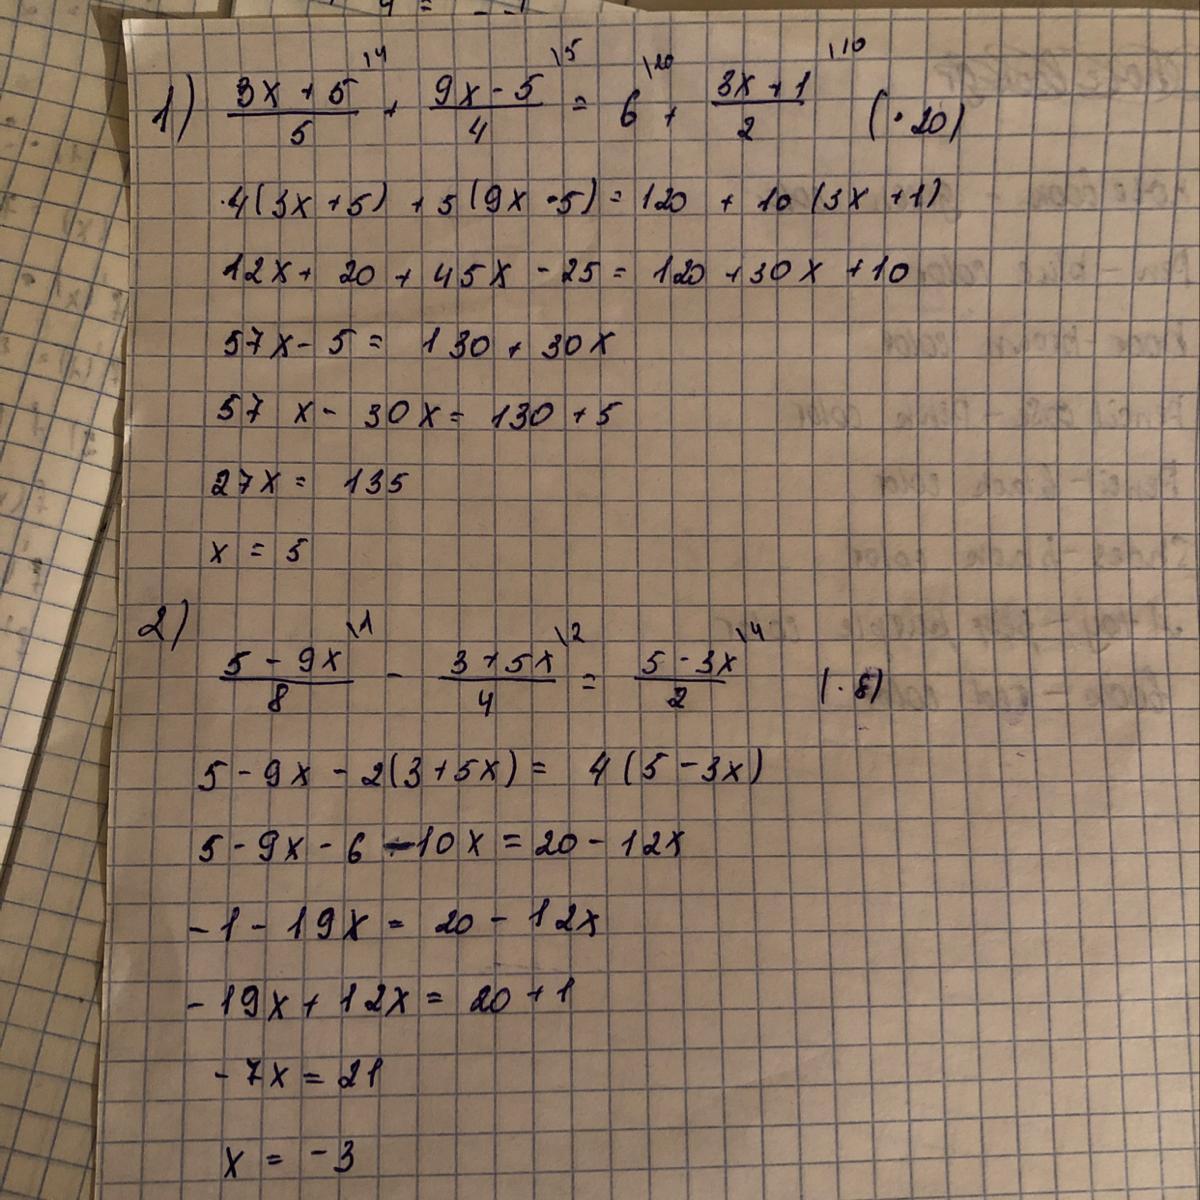 1) (3x + 5)/5 \4 + (9x - 5)/4 \5 = 6 \20 + (3x + 1)/2 \10 (· 20)
4(3x + 5) + 5(9x - 5) = 120 + 10(3x + 1)
12x + 20 + 45x - 25 = 120 + 30x + 10
57x - 5 = 130 + 30x
57x - 30x = 130 + 5
27x = 135
x = 5
2) (5 - 9x)/8 \1 - (3 + 5x)/4 \2 = (5 - 3x)/2 \4 (· 8)
5 - 9x - 2(3 + 5x) = 4(5 - 3x)
5 - 9x - 6 - 10x = 20 - 12x
- 1 - 19x = 20 - 12x
- 19x + 12x = 20 + 1
- 7x = 21
x = - 3